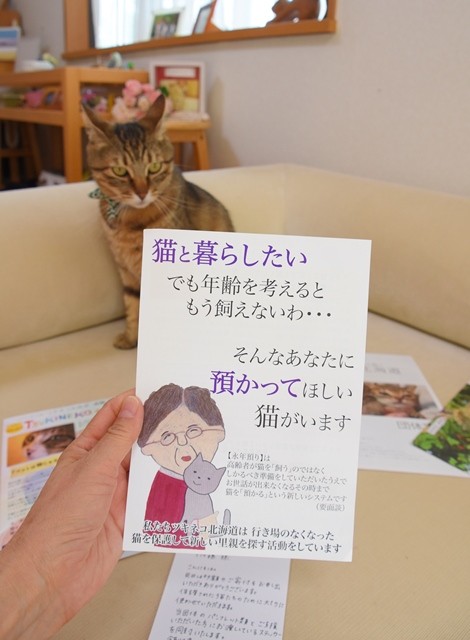 猫と暮らしたい
でも年齢を考えると
もう飼えないわ・・・
そんなあなたに
預かってほしい
猫がいます
【永年預り】は
高齢者が猫を「飼う」のではなく
しかるべき準備をしていただいたうえで
お世話が出来なくなるその時まで
猫を「預かる」という新しいシステムです
（要面談）
私たちツキネコ北海道は 行き場のなくなった
猫を保護して新しい里親を探す活動をしています